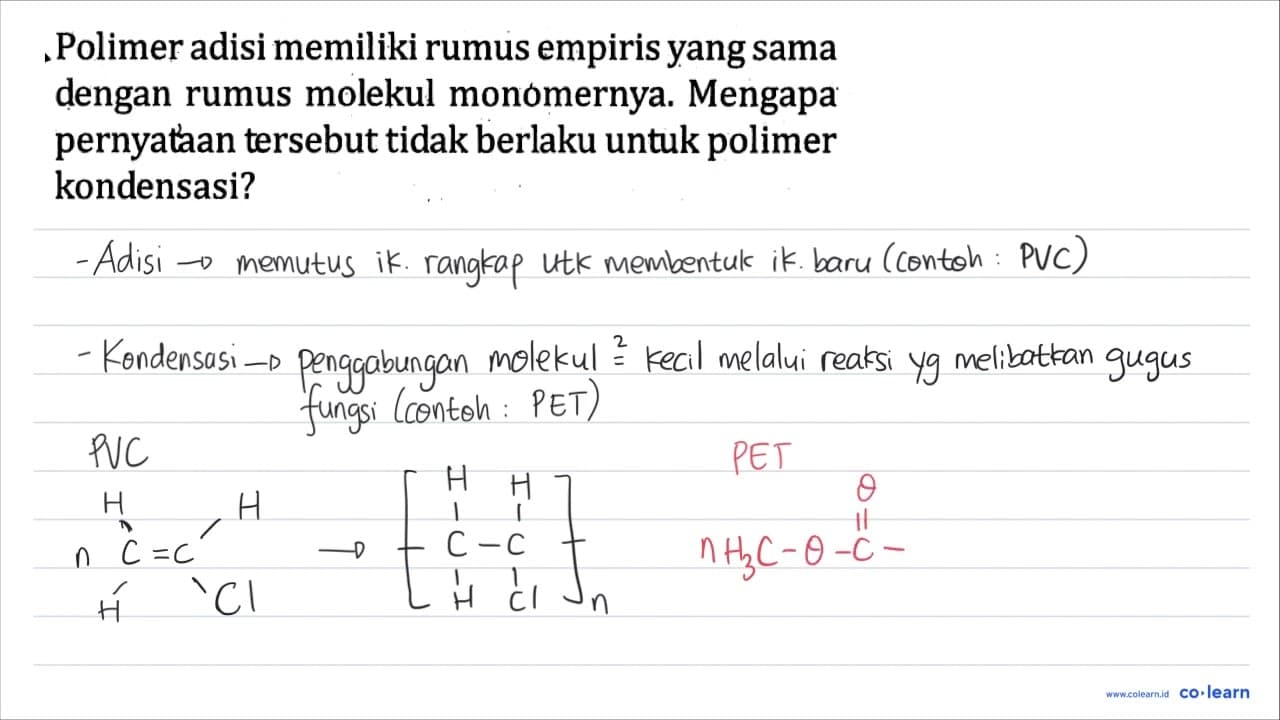 Polimer adisi memiliki rumus empiris yang sama
dengan rumus molekul monomernya. Mengapa
pernyataan tersebut tidak berlaku untuk polimer
kondensasi?
- Adisi → memutus ik. rangkap utk membentuk ik. baru (contoh : PVC)
- Kondensasi → penggabungan molekul ² kecil melalui reaksi yg melibatkan gugus
fungsi (contoh : PET)
PVC
PET
H H H H O
n C = C → [ C - C ] n H₃C - O - C -
H Cl H Cl n
www.colearn.id co·learn